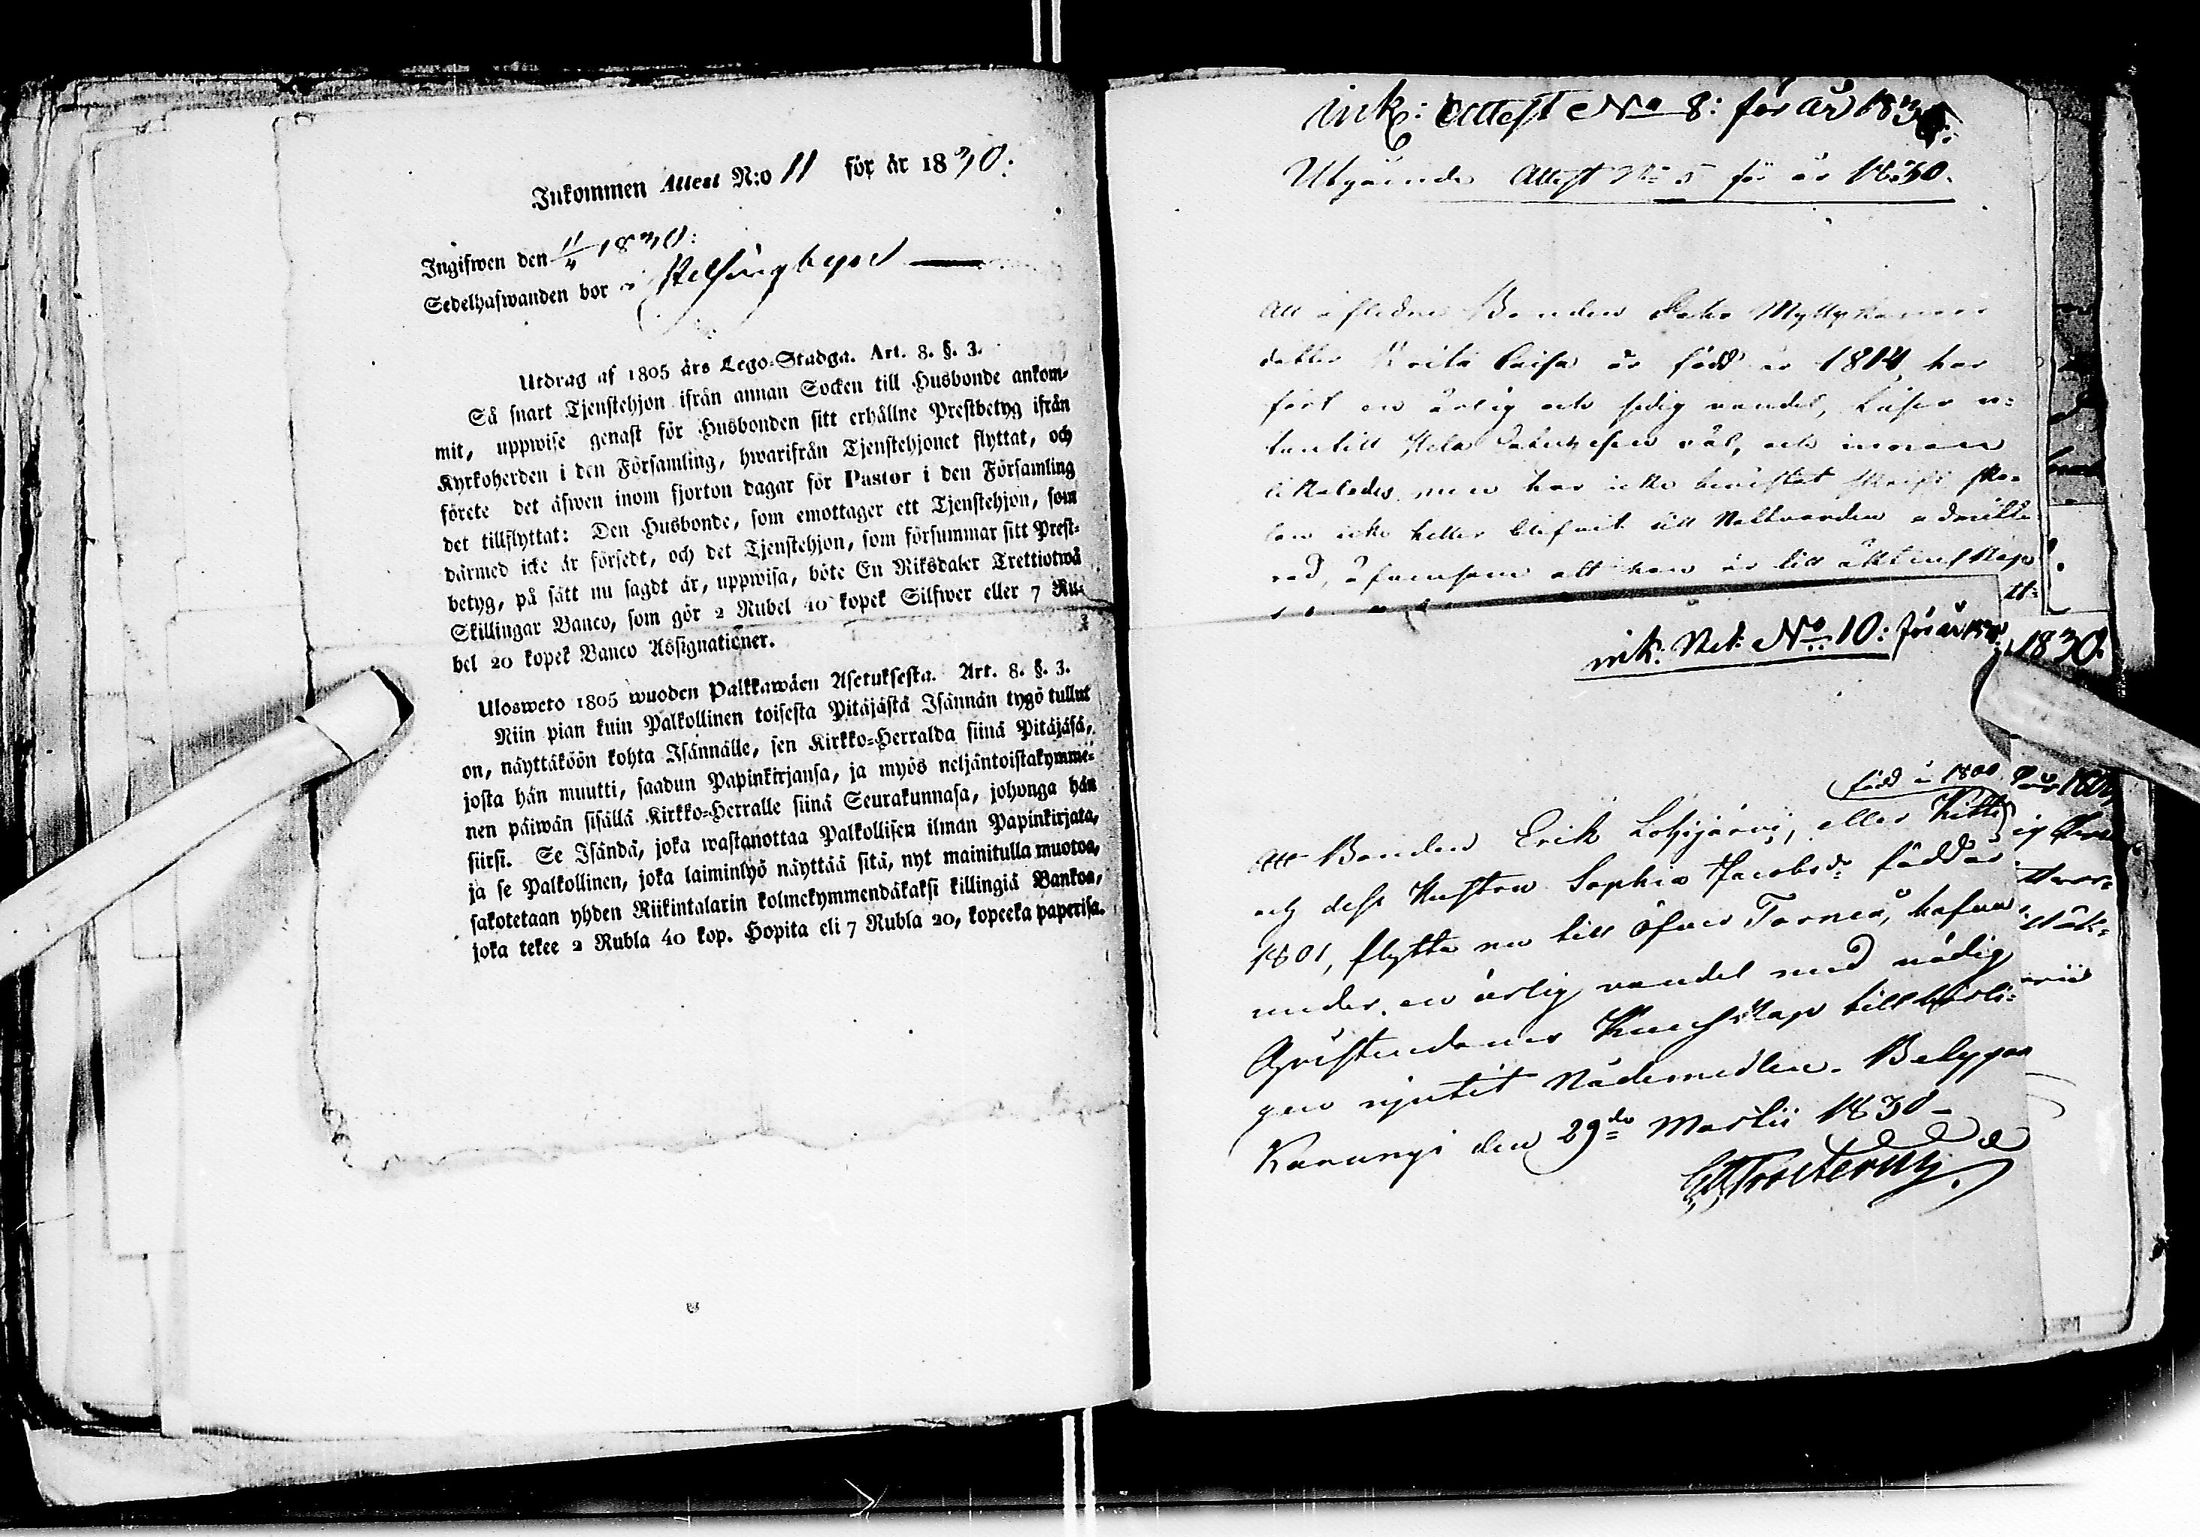 Inkommen Attest N:o 11 för år 1830.
Ingifwen den 11/4 1830:
Sedelhafwanden bor i Helsingbyn
Utdrag af 1805 års Lego-Stadga. Art. 8. §. 3.
Så snart Tjenstehjon ifrån annan Socken till Husbonde ankom-
mit, uppwise genast för Husbonden sitt erhållne Prestbetyg ifrån
Kyrkoherden i den Församling, hwarifrån Tjenstehjonet flyttat, och
förete det äfwen inom fjorton dagar för Pastor i den Församling
det tillflyttat: Den Husbonde, som emottager ett Tjenstehjon, som
därmed icke är försedt, och det Tjenstehjon, som försummar sitt Prest-
betyg, på sätt nu sagdt är, uppwisa, böte En Riksdaler Trettiotwå
Skillingar Banco, som gör 2 Rubel 40 kopek Silfwer eller 7 Ru-
bel 20 kopek Banco Assignationer.
Ulosweto 1805 wuoden Palkkawäen Asetuksesta. Art. 8. §. 3.
Niin pian kuin Palkollinen toisesta Pitäjästä Isännän tygö tullut
on, näyttäköön kohta Isännälle, sen Kirkko-Herralda siinä Pitäjäsä,
josta hän muutti, saadun Papinkirjansa, ja myös neljäntoistakymme-
nen päiwän sisällä Kirkko-Herralle siinä Seurakunnasa, johonga hän
siirsi. Se Isändä, joka wastanottaa Palkollisen ilman Papinkirjata,
ja se Palkollinen, joka laiminlyö näyttää sitä, nyt mainitulla muotoa,
sakotetaan yhden Riikintalarin kolmekymmendäkaksi killingiä Bankoa,
joka tekee 2 Rubla 40 kop. Hopita eli 7 Rubla 20, kopeeka paperisa.
ink: Attest No 8: för år 1830:
Utgående Attest No 5 för år 1830.
Att aflidne Bonden Myllykangas
dotter Brita Caisa är född år 1814, har
fört en ärlig och sedig vandel, läser u-
tantill hela väl, och innan
likaledes, men har icke bevistat
icke heller till Nattvarden
rad, äfvensom att hon är till äktenskap
ink: Att: No 10: för år 1830. 1830.
född år 1800
Att Bonden Erik Lohijärvi, eller Kitti
och dess Hustru Sophia Jacobsdr: född år
1801, flytta nu till Öfver Torneå, hafva
under en ärlig vandel med nödig
Christendoms Kunskap tillbörli-
gen njutit Nådemedlen. Betygar
Karungi den 29de Martii 1830